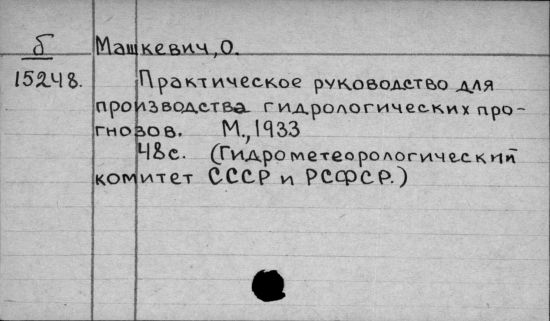 б Машкевич, О.
15248. Практическое руководство для
производства гидрологических про-
гнозов. М., 1933
48с. (Гидрометеорологический
комитет СССР и РСФСР.)